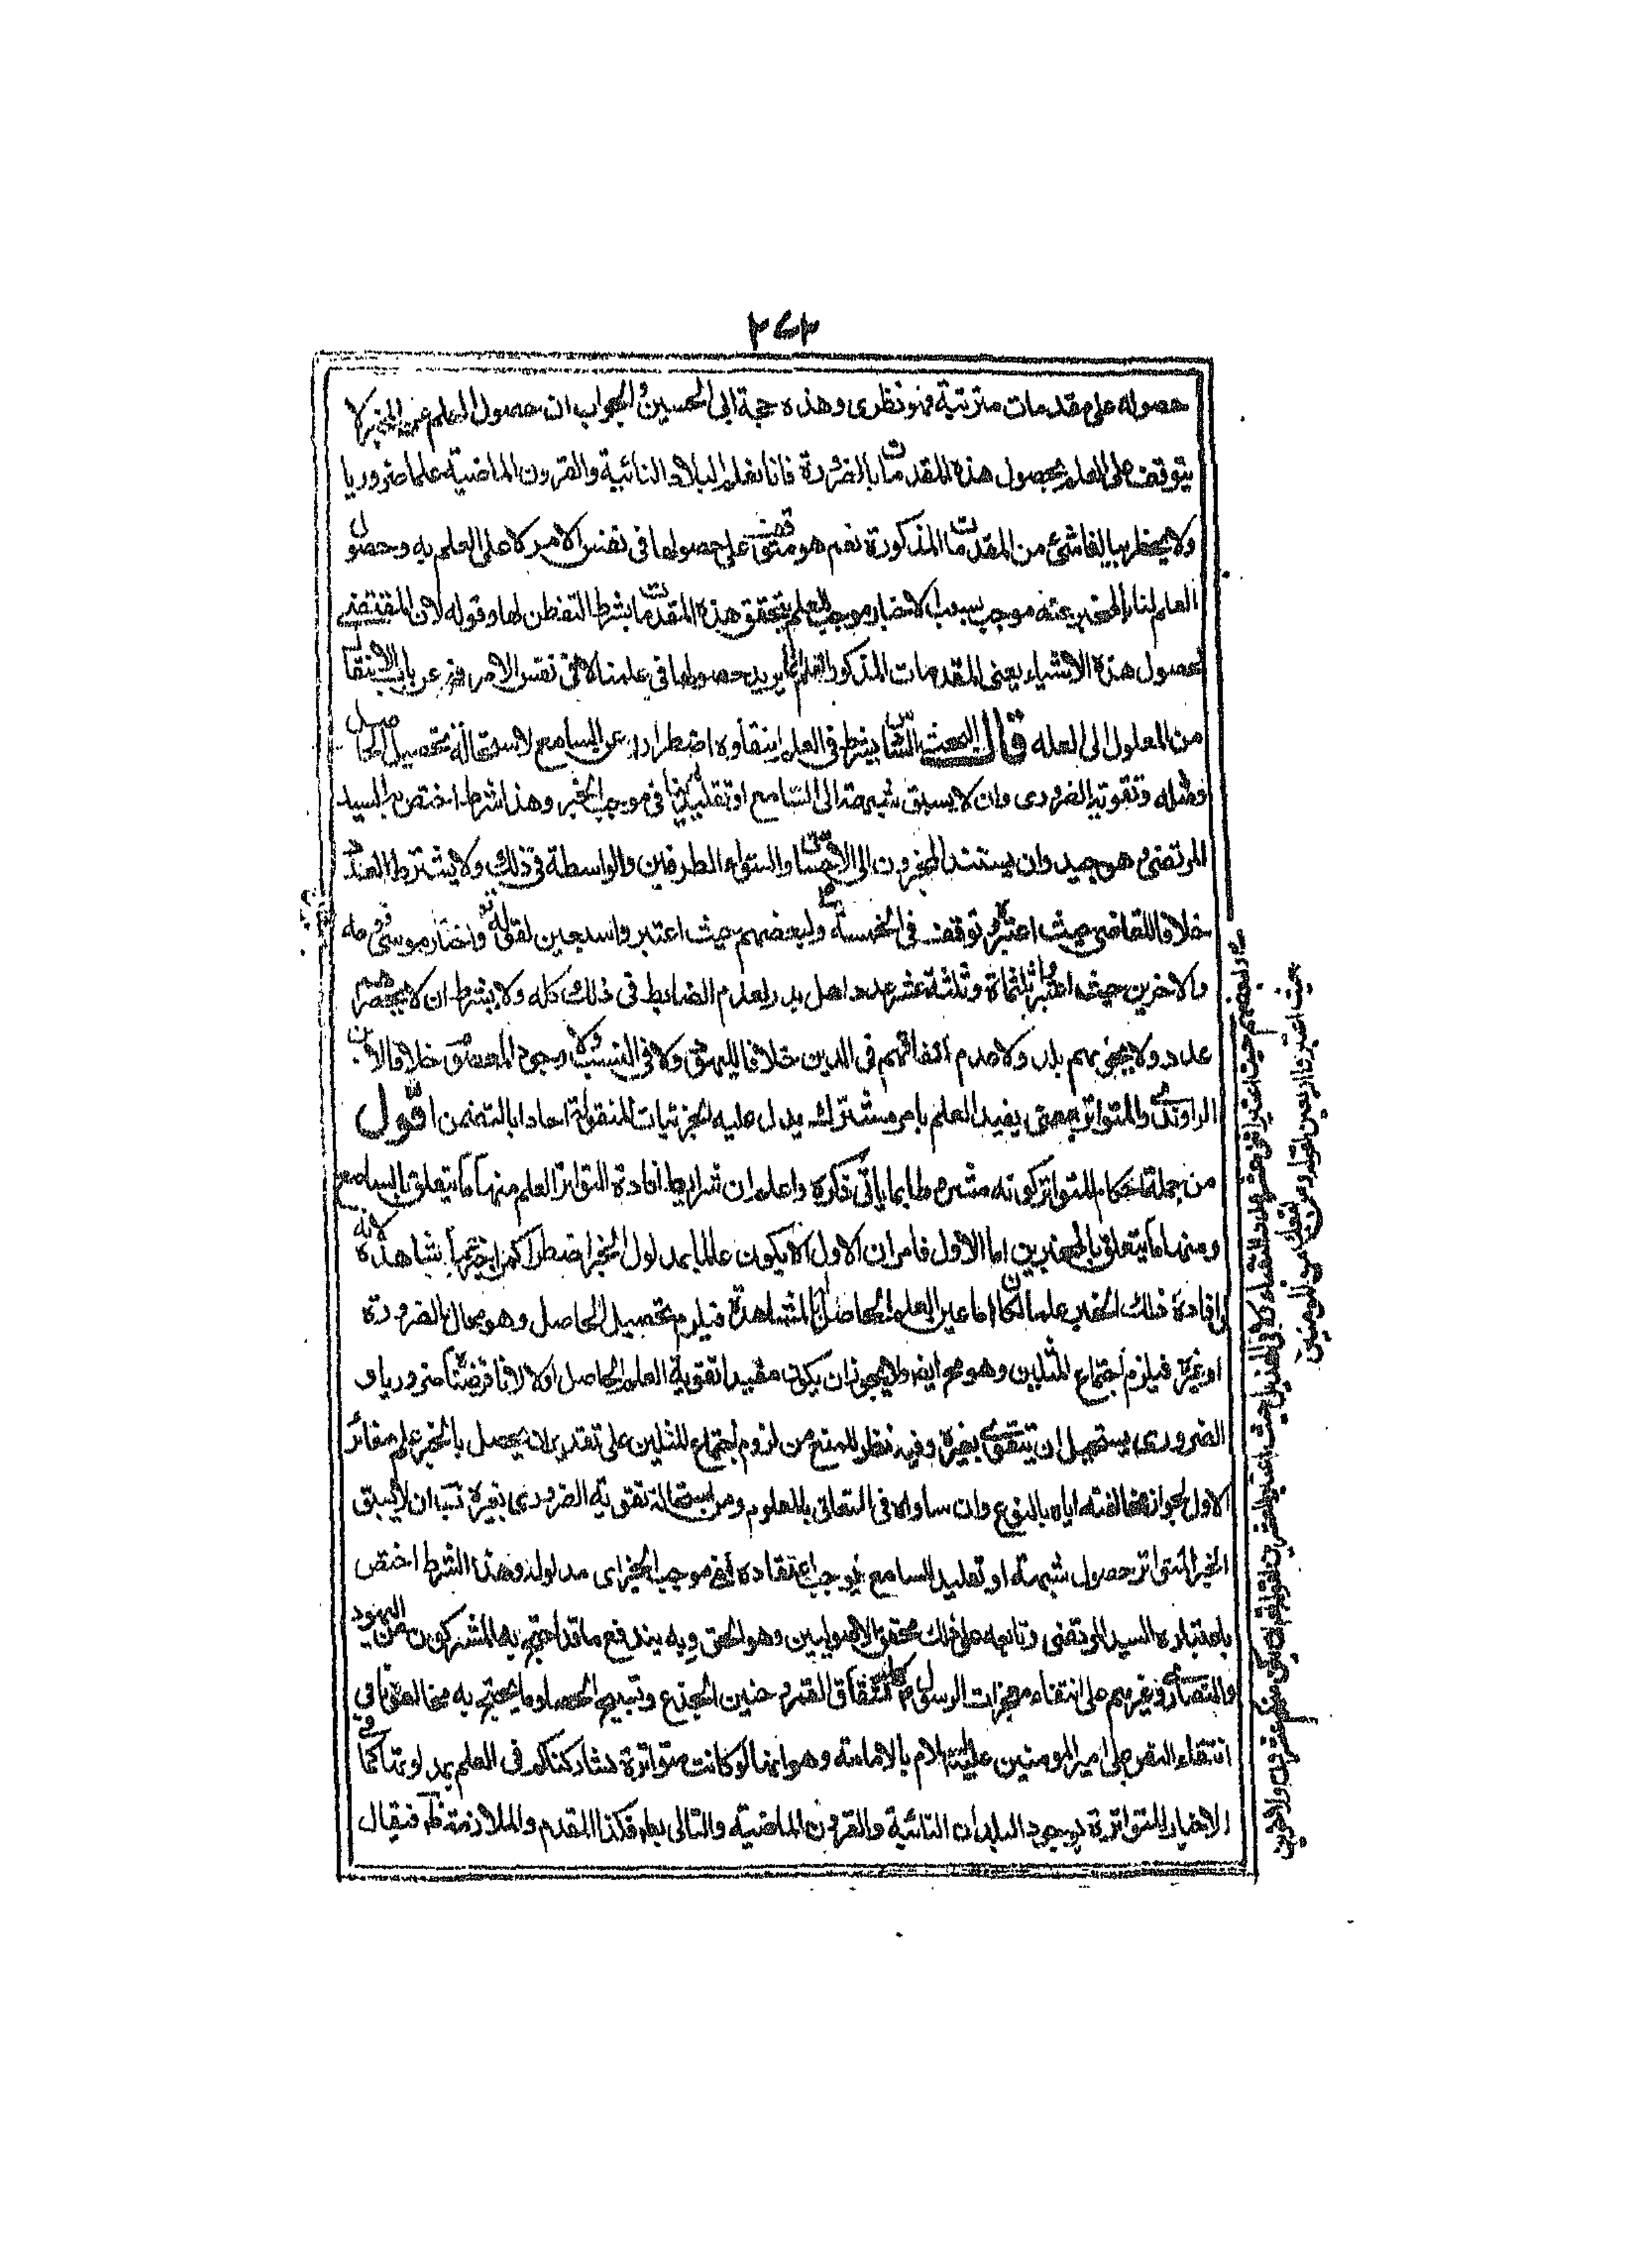 ٢٧٣
حصوله على مقدمات مترتبة فهو نظرى وهذه حجة ابى الحسين والجواب ان حصول العلم عن الخبر لا
يتوقف على العلم بحصول هذه المقدمات بالضرورة فانا نعلم البلاد النائية والقرون الماضية علما ضروريا
ولا يخطر ببالنا شئ من المقدمات المذكورة نعم هو متوقف على حصولها فى نفس الامر لا على العلم به وحصول
العلم لنا بالمخبر عنه موجب بتحقق هذه المقدمات بشرط التفطن لها وقوله لان المقتضى
لحصول هذه الاشياء يعنى المقدمات المذكورة يريد حصولها فى علمنا لا فى نفس الامر فهو عن باب الانتقال
من المعلول الى العله قال البحث الثانى يشترط فى العلم انتفاوه اضطرارا عن السامع لاستحالة تحصيل الحاصل
ومثله وتقوية الضرورى وان لا يسبق شبهة الى السامع او تقليد فى موجب الخبر وهذا شرط اختص به السيد
المرتضى وهو جيد وان يستند المخبرون الى الاحساس واستواء الطرفين والواسطة فى ذلك ولا يشترط العدد
خلافا للقاضى حيث اعتبر وتوقف فى الخمسة ولبعضهم حيث اعتبر واسبعين لقوله تع واختار موسى قومه
والاخرين حيث اعتبروا ثلثمأة وثلثة عشر عدد اهل بدر لعدم الضابط فى ذلك كله ولا يشترط ان لا يحصرهم
عدد ولا يحويهم بلد ولا عدم اتفاقهم فى الدين خلافا لليهود ولا فى النسب ولا وجود المعصوم خلافا لابن
الراوندى والمتواتر معنى يفيد العلم بامر مشترك يدل عليه الجزئيات المنقولة احادا بالتضمن اقول
من جملة احكام المتواتر كونه مشروطا بما ياتى ذكره واعلم ان شرايط افادة التواتر العلم منها ما يتعلق بالسامع
ومنها ما يتعلق بالمخبرين اما الاول فامران الاول الا يكون عالما بمدلول الخبر اضطرارا كمن اخبر بما شاهده لانه
لو افادة ذلك الخبر علما لكان اما عين العلم الحاصل بالمشاهدة فيلزم تحصيل الحاصل وهو محال بالضرورة
او غيره فيلزم اجتماع المثلين وهو مح ايضا ولا يجوز ان يكون مفيدا تقوية العلم الحاصل اولا لانا فرضناه ضروريا و
الضرورى يستحيل ان يتقوى بغيره وفيه نظر للمنع من لزوم اجتماع المثلين على تقدير ان يحصل بالخبر علم مغائر
الاول لجواز مخالفته اياه بالنوع وان ساواه فى التعلق بالمعلوم ومن استحالة تقوية الضرورى بغيره ب ان لا يسبق
الخبر المتواتر حصول شبهة او تقليد السامع يوجب اعتقاده نفى موجب الخبر اى مدلوله وهذا الشرط اختص
باعتباره السيد المرتضى وتابعه على ذلك محققوا الاصوليين وهو الحق وبه يندفع ما قد احتج به المشركون من اليهود
والنصارى وغيرهم على انتفاء معجزات الرسول ص كانشقاق القمر و حنين الجذع وتسبيح الحصا وما يحتج به مخالفونا فى
انتفاء النص على امير المومنين عليه السلام بالامامة وهو انها لو كانت متواترة لشاركناكم فى العلم بمدلولها كما فى
الاخبار المتواترة بوجود البلدان النائية والقرون الماضية والتالى بط فكذا المقدم والملازمة ظ فيقال
ولبعضهم حيث اعتبر اثنى عشر عدد النقباء ولابى الهذيل حيث اعتبر العشرين لقوله تعالى ان يكن منكم عشرون ولاخرين
حيث اعتبروا اربعين لقوله ومن اتبعك من المومنين